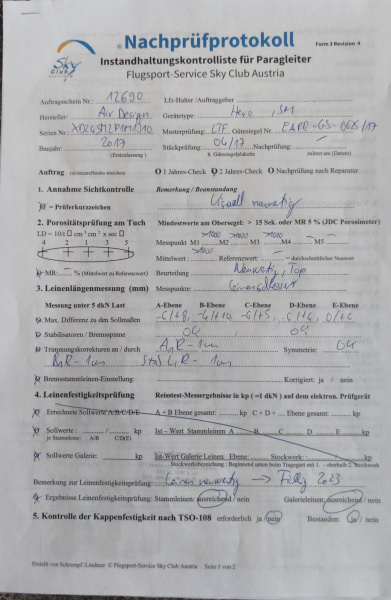 Nachprüfprotokoll
Form 3 Revision 4
Instandhaltungskontrolliste für Paragleiter
Flugsport-Service Sky Club Austria
Sky Club
Auftragsschein Nr.: 12690 Lfz-Halter /Auftraggeber
Hersteller: Air Design Gerätetype: Hero, SM
Serien Nr.: Musterprüfung: LTF Gütesiegel Nr.: EAPR-GS-0626/17
Baujahr: 2017 Stückprüfung: 04/17 Nachprüfung:
(Erstzulassung) lt. Gütesiegelplakette zuletzt am (Datum)
Auftrag O 1 Jahres-Check O 2 Jahres-Check O Nachprüfung nach Reparatur
1. Annahme Sichtkontrolle Bemerkung / Beanstandung
= Prüferkurzzeichen Visuell neuwertig
2. Porositätsprüfung am Tuch Mindestwerte am Obersegel: > 15 Sek. oder MR 5 % (JDC Porosimeter)
Messpunkt M1 M2 M3 M4 M5
4 2 1 3 5
Mittelwert: Referenzwert: = durchschnittlicher Neuwert
MR: % (Mittelwert zu Referenzwert) Beurteilung Neuwertig, Top
3. Leinenlängenmessung (mm) Messpunkte:
Messung unter 5 dkN Last A-Ebene B-Ebene C-Ebene D-Ebene E-Ebene
Max. Differenz zu den Sollmaßen -6/+8, -4/+10, -6/+5, -6/+4, 0/+6
Stabilisatoren / Bremsspinne 04 04
Trimmungskorrekturen an / durch A, R -1cm Symmetrie: 04
B, R -1cm Stab L, R -1cm
Bremsstammleinen-Einstellung: Korrigiert: ja / nein
4. Leinenfestigkeitsprüfung Reisstest-Messergebnisse in kp (=1 dkN) auf dem elektron. Prüfgerät
Errechnete Sollwerte A/B/C/D/E A + B Ebene gesamt: kp C + D + ... Ebene gesamt: kp
Sollwerte : / kp Ist – Wert Stammleinen A B C D E
je Stammleine: A/B C/D(E)
Sollwerte Galerie: kp Ist-Wert Galerie Leinen Ebene: Stockwerk : / kp
Stockwerkbezeichnung : Beginnend unten beim Tragegurt mit 1. - oberhalb 2. Stockwerk
Bemerkung zur Leinenfestigkeitsprüfung: Leinen neuwertig → Fällig 2023
Ergebnisse Leinenfestigkeitsprüfung: Stammleinen: ausreichend / nein Galerieleinen: ausreichend / nein
5. Kontrolle der Kappenfestigkeit nach TSO-108 erforderlich ja / nein Bestanden: ja / nein
Erstellt von Schrempf /Lindmer © Flugsport-Service Sky Club Austria Seite 1 von 2